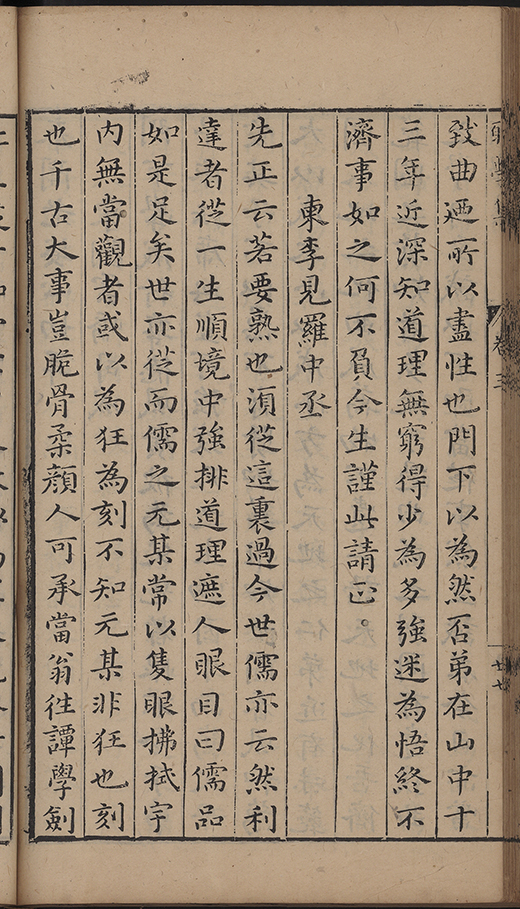 卷三
廿七
致曲迺所以盡性也門下以為然否弟在山中十
三年近深知道理無窮得少為多強迷為悟終不
濟事如之何不負今生謹此請正。
東李見羅中丞
先正云若要熟也須從這裏過今世儒亦云然利
達者從一生順境中強排道理遮人眼目曰儒品
如是足矣世亦從而儒之元某常以隻眼拂拭宇
內無當觀者或以為狂為刻不知元某非狂也刻
也千古大事豈脆骨柔顏人可承當翁徃譚學劍